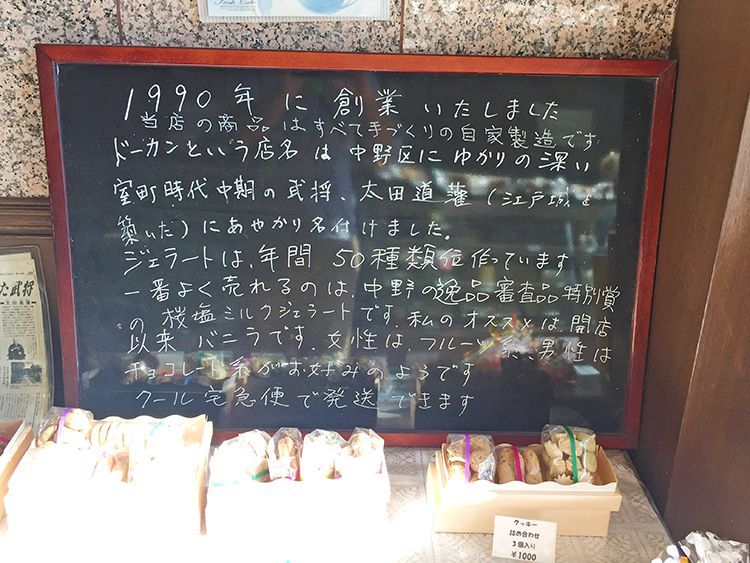 Fresh Cake
1990年に創業いたしました
当店の商品はすべて手づくりの自家製造です
ドーカンという店名は中野区にゆかりの深い
室町時代中期の武将、太田道灌(江戸城を
築いた)にあやかり名付けました。
ジェラートは、年間 50種類位作っています
一番よく売れるのは、中野の逸品審査品特別賞
の 桜塩ミルクジェラートです、私のオススメは、開店
以来 バニラです、女性は、フルーツ系、男性は
チョコレート系がお好みのようです
クール宅急便で発送できます
た武将
クッキー
詰め合わせ
3個入り
¥1000